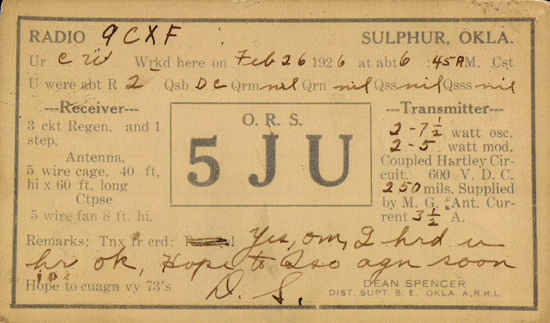 RADIO 9CXF SULPHUR, OKLA.
Ur CW Wrkd here on Feb 26 1926 at abt 6:45 A M. Cst
U were abt R 2 Qsb DC Qrm nil Qrn nil Qss nil Qsss nil
---Receiver---
3 ckt Regen. and 1
step.
Antenna,
5 wire cage, 40 ft,
hi x 60 ft. long
Ctpse
5 wire fan 8 ft. hi.
O. R. S.
5JU
---Transmitter---
2-7½ watt osc.
2-5 watt mod.
Coupled Hartley Cir-
cuit. 600 V. D. C.
250 mils. Supplied
by M. G. Ant. Cur-
rent 3½ A.
Remarks: Tnx fr crd: Yes, om, I hrd u
hr ok, Hope to Qso agn soon
Hope to cuagn vy 73's D. S.
DEAN SPENCER
DIST. SUPT. S. E. OKLA, A.R.R.L